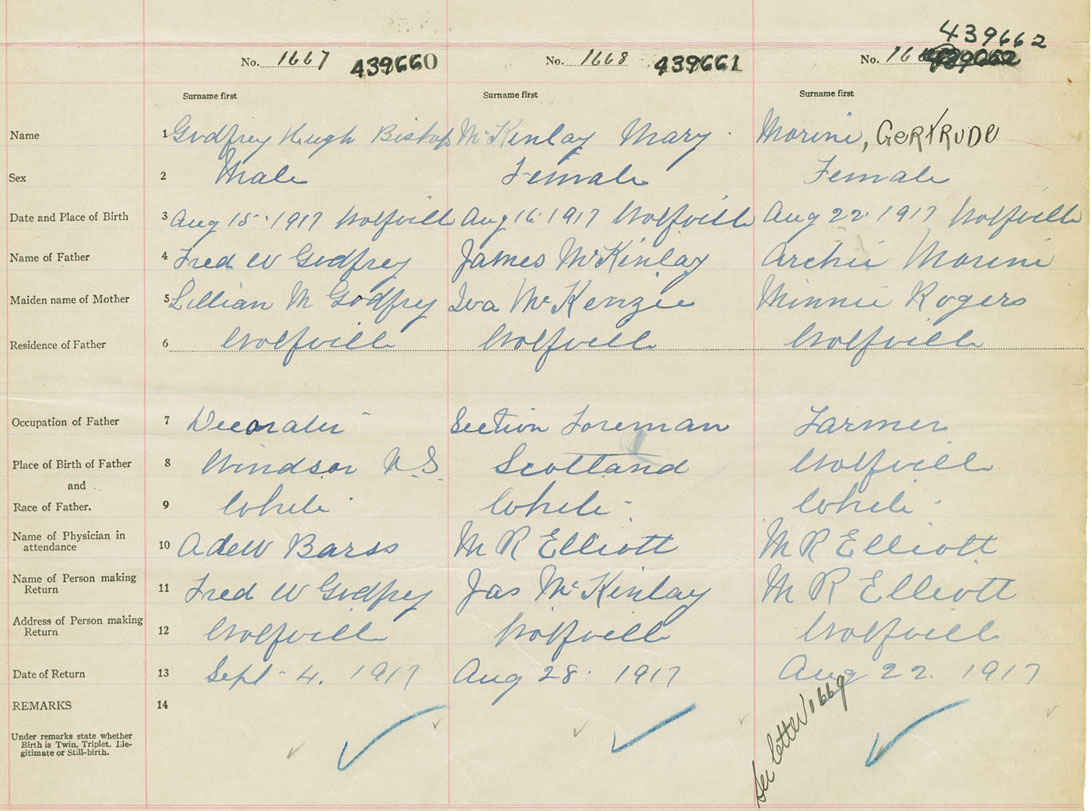 439662
No. 1667 439660 No. 1668 439661 No. 16
Surname first Surname first Surname first
Name 1 Godfrey Hugh Bishop McKinlay Mary Morine, GERTRUDE
Sex 2 Male Female Female
Date and Place of Birth 3 Aug 15 · 1917 Wolfville Aug 16 · 1917 Wolfville Aug 22 · 1917 Wolfville
Name of Father 4 Fred W Godfrey James McKinlay Archie Morine
Maiden name of Mother 5 Lillian M Godfrey Iva McKenzie Minnie Rogers
Residence of Father 6 Wolfville Wolfville Wolfville
Occupation of Father 7 Decorator Section Foreman Farmer
Place of Birth of Father 8 Windsor N.S. Scotland Wolfville
and
Race of Father. 9 White White - White -
Name of Physician in
attendance 10 A deW Barss M R Elliott M R Elliott
Name of Person making
Return 11 Fred W Godfrey Jas McKinlay M R Elliott
Address of Person making
Return 12 Wolfville Wolfville Wolfville
Date of Return 13 Sept - 4. 1917 Aug 28 · 1917 Aug 22. 1917
REMARKS 14
Under remarks state whether
Birth is Twin, Triplet, Ille-
gitimate or Still-birth.
See letter 1669